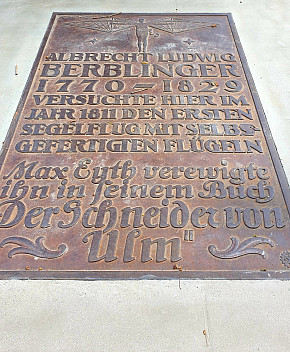 ALBRECHT LUDWIG
BERBLINGER
1770–1829
VERSUCHTE HIER IM
JAHR 1811 DEN ERSTEN
SEGELFLUG MIT SELBS-
GEFERTIGTEN FLÜGELN
Max Eyth verewigte
ihn in seinem Buch
Der Schneider von
Ulm"